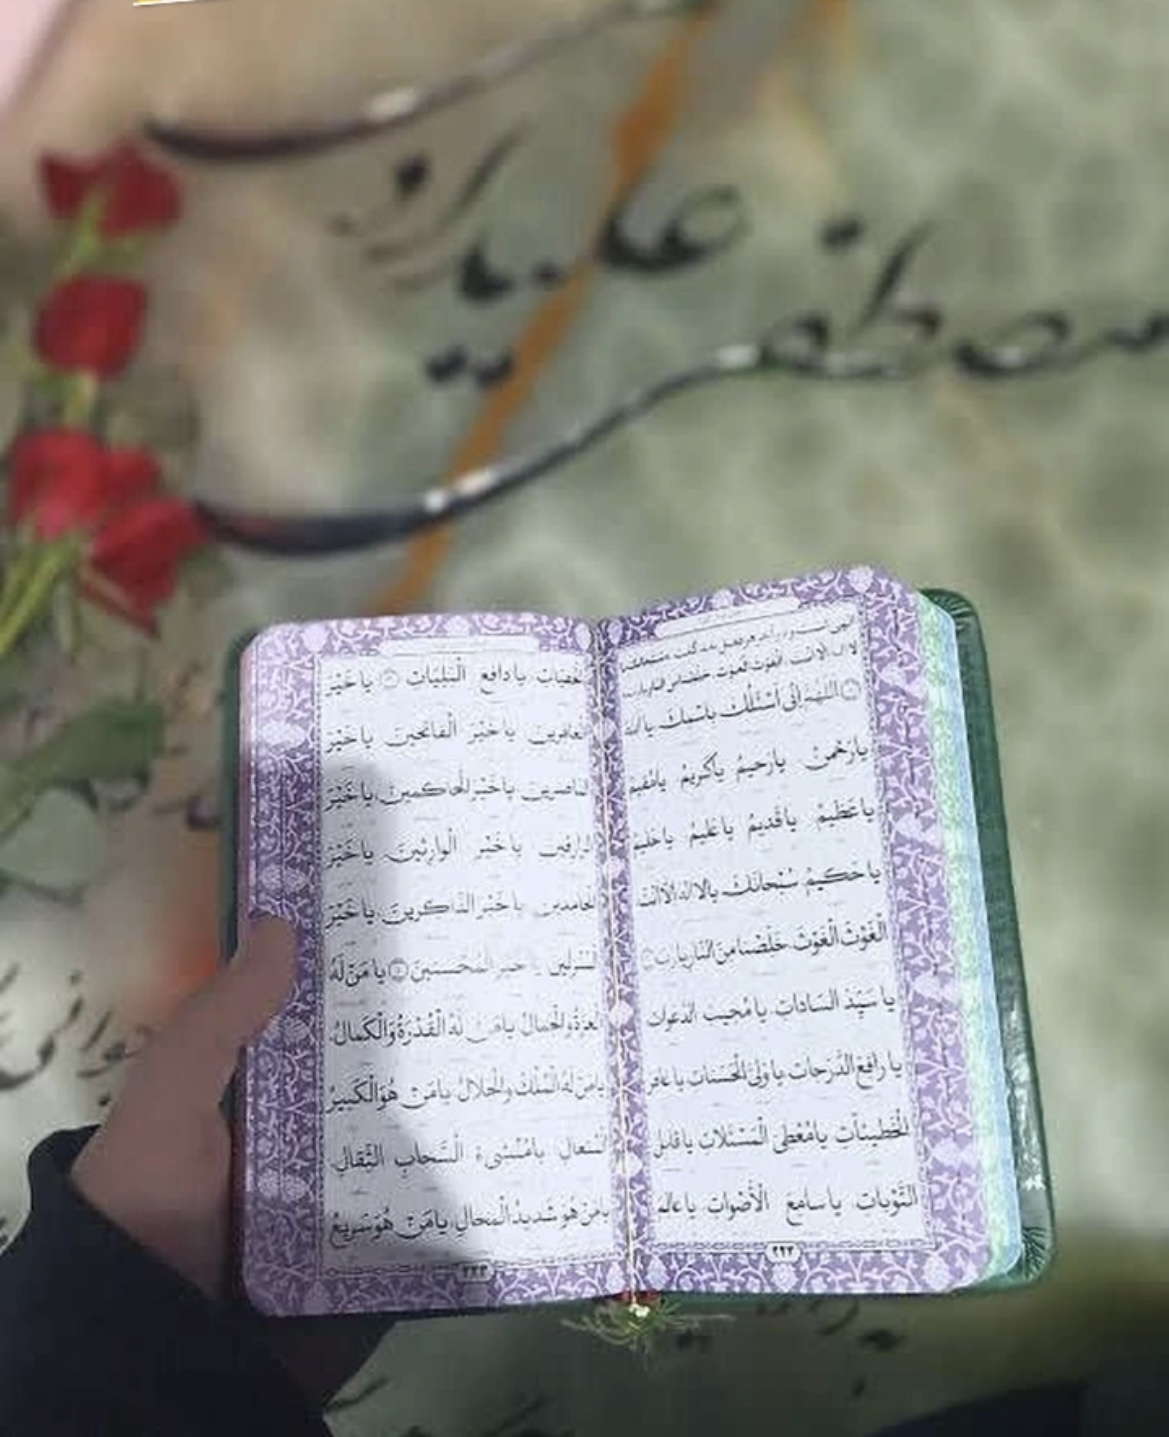 مصطفی علیاری
لا اله الا انت الغوث الغوث خلصنا من النار یا رب
اللهم انی اسئلک باسمک یا الله
یا رَحْمنُ یا رَحیمُ یا کَریمُ یا مُقیمُ
یا عَظیمُ یا قَدیمُ یا عَلیمُ یا حَلیمُ
یا حَکیمُ سُبْحانَکَ یا لا اِلهَ اِلاّ اَنْتَ
الْغَوْثَ الْغَوْثَ خَلِّصْنا مِنَ النّارِ یا رَبِّ
یا سَیِّدَ السّاداتِ یا مُجیبَ الدَّعَواتِ
یا رافِعَ الدَّرَجاتِ یا وَلِیَّ الْحَسَناتِ یا غافِرَ
الْخَطیئاتِ یا مُعْطِیَ الْمَسْئَلاتِ یا قابِلَ
التَّوْباتِ یا سامِعَ الْأَصْواتِ یا عالِمَ
٢٢٢
الْخَفِیّاتِ یا دافِعَ الْبَلِیّاتِ یا خَیْرَ
الْغافِرینَ یا خَیْرَ الْفاتِحینَ یا خَیْرَ
النّاصِرینَ یا خَیْرَ الْحاکِمینَ یا خَیْرَ
الرّازِقینَ یا خَیْرَ الْوارِثینَ یا خَیْرَ
الْحامِدینَ یا خَیْرَ الذّاکِرینَ یا خَیْرَ
الْمُنْزِلینَ یا خَیْرَ الْمُحْسِنینَ یا مَنْ لَهُ
الْعِزَّةُ وَالْجَمالُ یا مَنْ لَهُ الْقُدْرَةُ وَالْکَمالُ
یا مَنْ لَهُ الْمُلْکُ وَالْجَلالُ یا مَنْ هُوَ الْکَبیرُ
الْمُتَعالِ یا مُنْشِیءَ السَّحابِ الثِّقالِ
یا مَنْ هُوَ شَدیدُ الْمِحالِ یا مَنْ هُوَ سَریعُ
٢٢٣